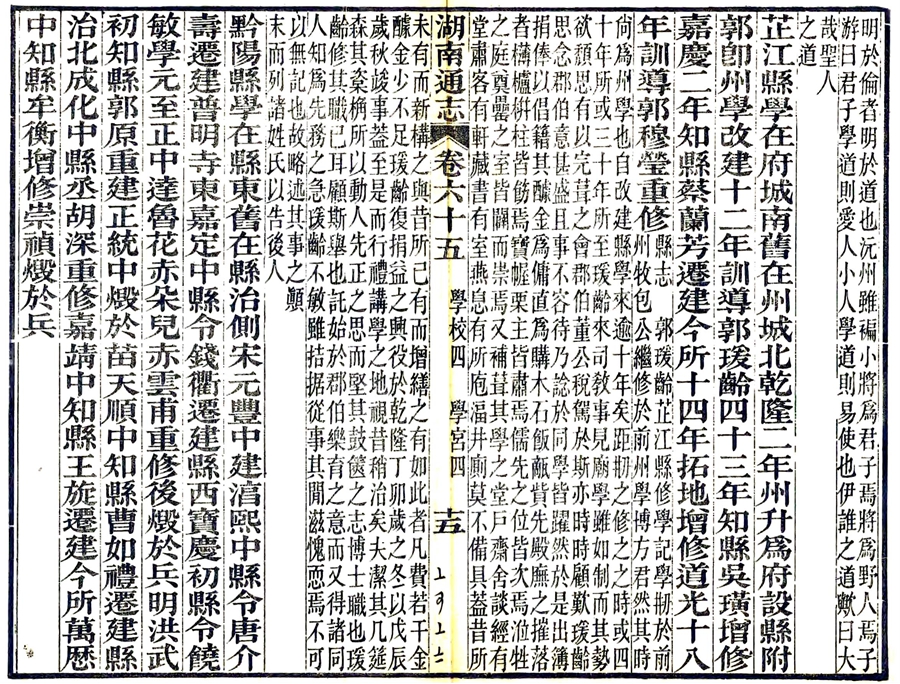 明於倫者明於道也沅州雖褊小將為君子焉將為野人焉子
游曰君子學道則愛人小人學道則易使也伊誰之道歟曰大
哉聖人
之道
芷江縣學在府城南舊在州城北乾隆二年州升為府設縣附
郭卽州學改建十二年訓導郭瑗齡四十三年知縣吳璜增修
嘉慶二年知縣蔡蘭芳遷建今所十四年拓地增修道光十八
年訓導郭穆瑩重修
縣志 郭瑗齡芷江縣修學記學刱於前
州牧包公繼修於前州學博方君然其時
尙為州學也自改建縣學來逾十年矣距刱之修之之時或四
十年所或三十年所至瑗齡來司敎事見廟學雖如制而其勢
欲頹思有以完葺之會郡伯董公稅駕於斯亦時時顧歎瑗齡
思念郡伯意甚盛且事不容待乃諗於同學皆躍然於是出簿
捐俸以倡籍其醵金為傭直為購木石皆先嚴廡之摧落
者欂櫨柱皆飭焉寶幄栗主皆肅焉儒先之位皆次焉涖牲
之庭奠罍之室皆闢而崇焉又補葺其學之堂戶齋舍談經所
堂肅客有軒藏書有室燕息有所庖湢井廁莫不備具蓋昔所
湖南通志 卷六十五 學校四 學宮四 十五
未有而新構之與昔所已有而增繕之有如此者凡費若干金
醵金少不足瑗齡復捐益之興役於乾隆丁卯歲之冬以戊辰
歲秋竣事蓋至是而行禮講學之地視昔稍治矣夫潔其几筵
森其所以動人先正之思而堅其鼓篋之志博士職也瑗
齡修其職已耳顧斯舉也託始於郡伯樂育之意而又得諸同
人知為先務之急瑗齡不敏雖拮据從事其閒滋愧恧焉不可
以無記也故略述其事之顚
末而列諸姓氏以告後人
黔陽縣學在縣東舊在縣治側宋元豐中建淳熙中縣令唐介
壽遷建普明寺東嘉定中縣令錢衢遷建縣西寶慶初縣令饒
敏學元至正中達魯花赤朵兒赤雲甫重修後燬於兵明洪武
初知縣郭原重建正統中燬於苗天順中知縣曹如禮遷建縣
治北成化中縣丞胡深重修嘉靖中知縣王旋遷建今所萬厯
中知縣牟衡增修崇禎燬於兵